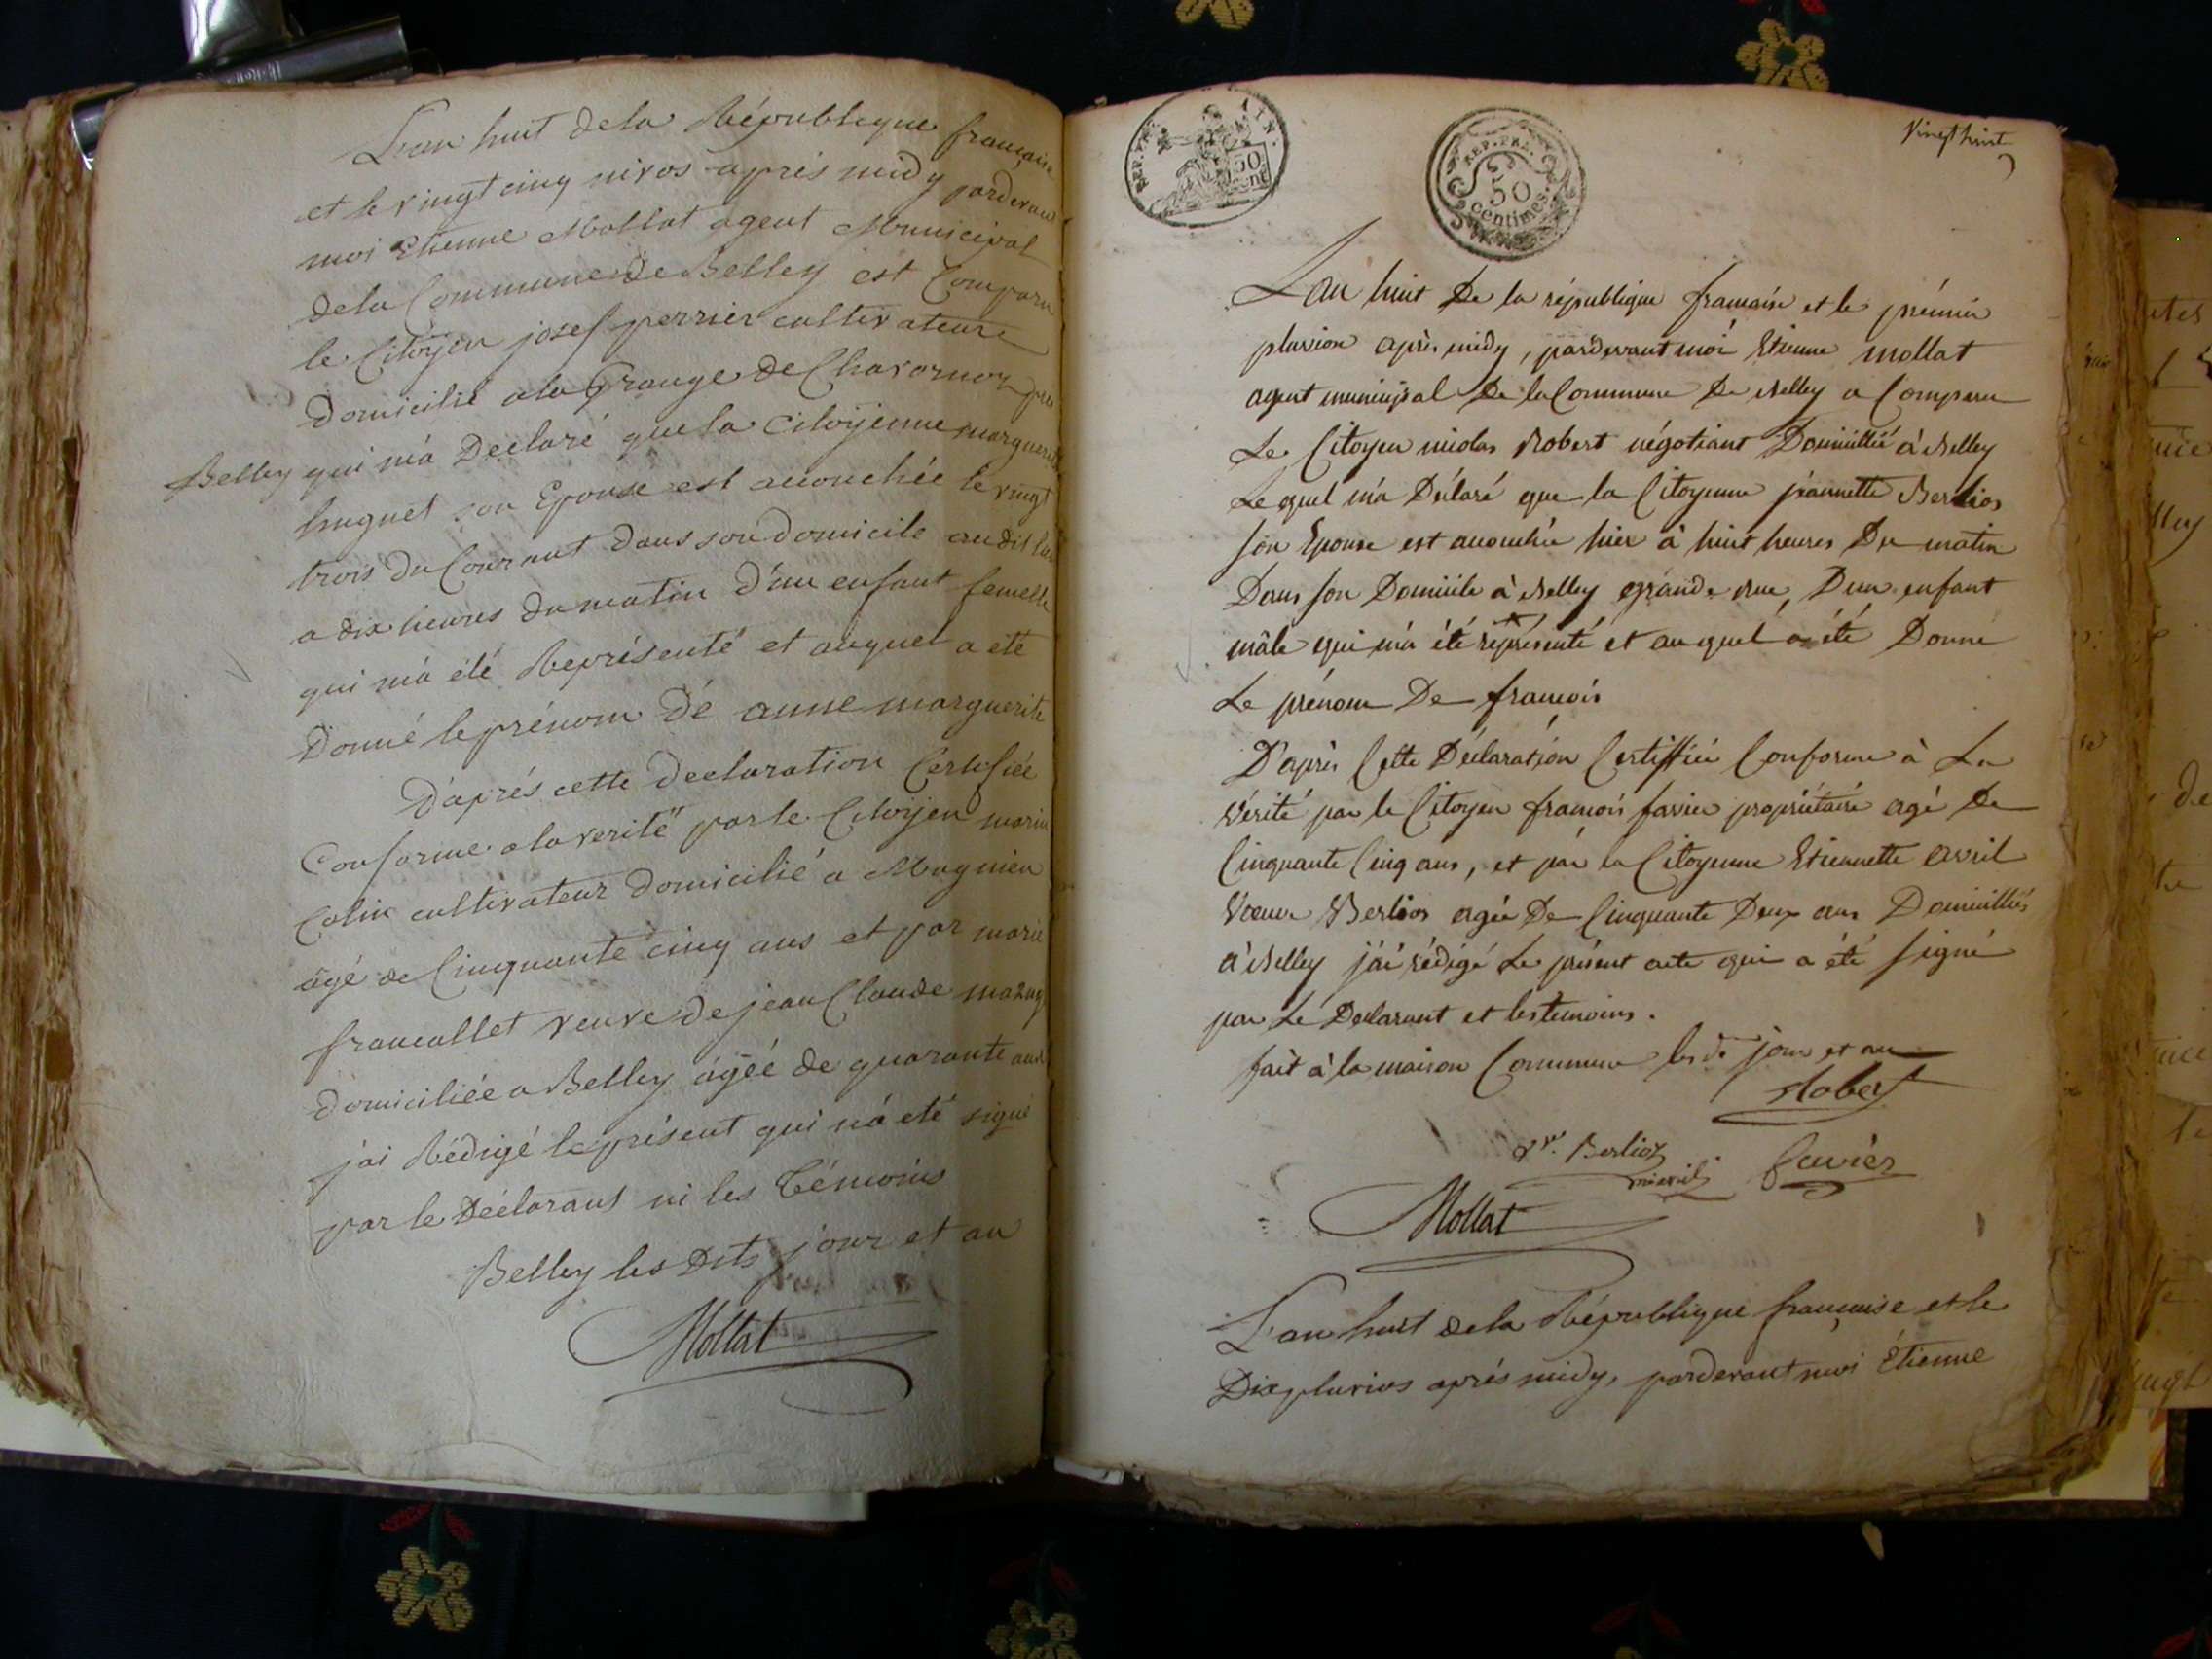 L'an huit de la République francaise
et le vingt cinq nivos après midy pardevant
moi Etienne Mollat agent Municipal
de la Commune de Belley est Comparu
le Citoÿen josef perrier cultivateur
Domicilié a la Grange de Chavornoz près
Belley qui m'a Déclaré que la Citoÿenne marguerite
huguet son Epouse est accouchée le vingt
trois du Courant dans son domicile au dit lieu
a dix heures du matin d'un enfant femelle
qui m'a été Représenté et auquel a été
Donné le prénom de anne marguerite
D'aprés cette declaration Certifiée
Conforme a la verité par le Citoÿen marin
Colin cultivateur domicilié a Magnieu
âgé de Cinquante cinq ans et par marie
francallet veuve de jean Claude
domiciliée a Belley âgée de quarante ans
j'ai Rédigé le présent qui n'a eté signé
par le Déclarant ni les témoins
Belley les Dits jour et an
Mollat
REP. FRA. AIN.
50 cent
REP. FRA.
50
centimes.
Vingt huit
L'an huit De la république francaise et le prémier
pluviose après midy, pardevant moi Etienne mollat
agent municipal De la Commune De Belley a Comparu
Le Citoyen nicolas Robert négotiant Domicillié à Belley
Lequel m'a Déclaré que la Citoyenne jeannette Berlios
son Epouse est accouchée hier à huit heures Du matin
Dans son Domicile à Belley grande rue, D'un enfant
mâle qui m'a été représenté et auquel a été Donné
Le prénom De francois
D'après Cette Déclaration Certiffiée Conforme à La
Vérité par le Citoyen francois favier propriétaire agé De
Cinquante Cinq ans, et par la Citoyenne Etiennette avril
Veuve Berlios agée De Cinquante Deux ans Domicilliés
à Belley j'ai rédigé Le présent acte qui a été signé
par Le Déclarant et les temoins.
fait à la maison Commune les d. jour et an
Robert
Vve. Berlioz
favier
Mollat
L'an huit de la République francaise et le
Dix pluvios aprés midy, pardevant moi Étienne